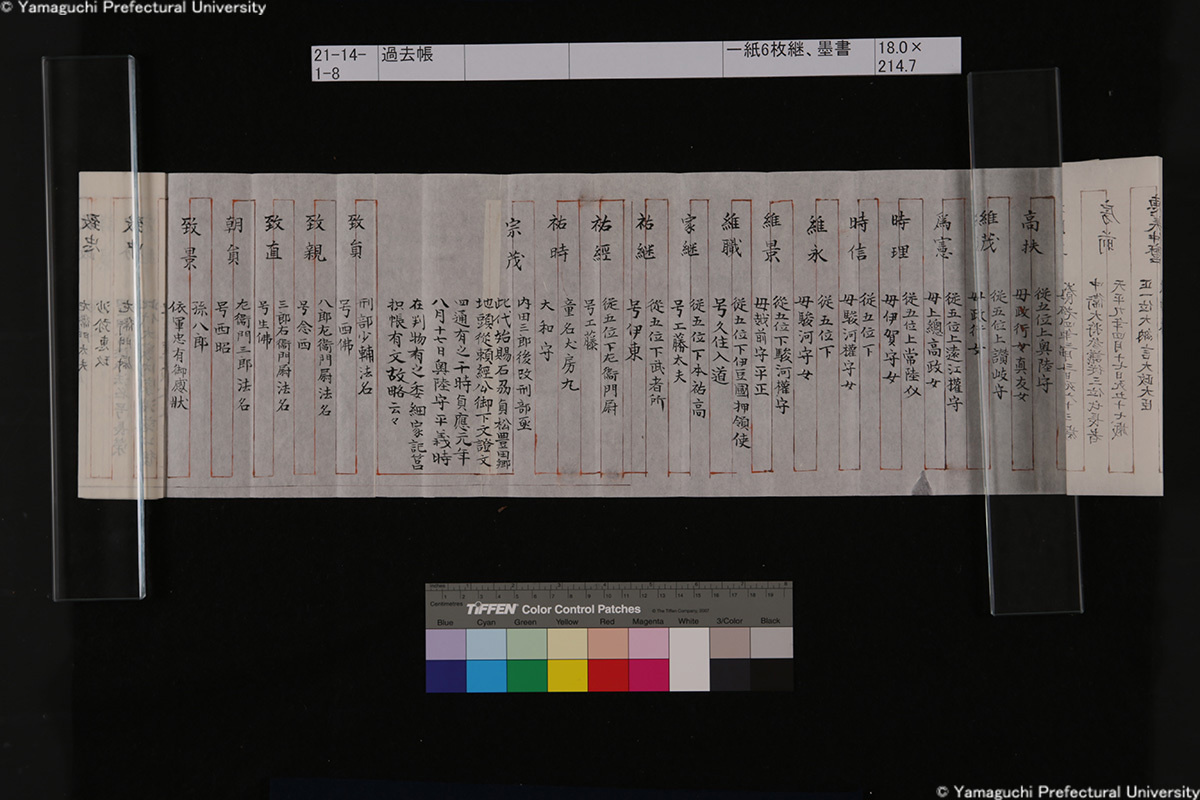 © Yamaguchi Prefectural University
21-14-1-8
過去帳
一紙6枚継、墨書
18.0×214.7
高扶
従五位上奥陸守
母政衡女真友女
維茂
従五位上讃岐守
爲憲
従五位上遠江權守
母上總高政女
時理
従五位上常陸
母伊賀守女
時信
従五位下
母駿河權守女
維永
従五位下
母駿河守女
維景
従五位下駿河權守
母越前守平正
維職
従五位下伊豆國押領使
号久住入道
家継
従五位下本祐高
号工藤大夫
祐継
従五位下武者所
号伊東
祐經
従五位下左衛門尉
号工藤
祐時
童名犬房丸
大和守
宗茂
内田三郎後改刑部丞
此代始賜石刕貞松豊田郷
地頭従頼經公御下文證文
四通有之于時貞應元年
八月十七日奥陸守平義時
在判物有之委細家記筥
積帳有文故略云々
致員
刑部少輔法名
号西佛
致親
八郎左衛門尉法名
号念西
致直
三郎右衛門尉法名
号生佛
朝員
左衛門三郎法名
号西昭
致景
孫八郎
依軍忠有御感状
Inches
Centimetres
TIFFEN Color Control Patches
© The Tiffen Company, 2007
Blue Cyan Green Yellow Red Magenta White 3/Color Black
© Yamaguchi Prefectural University